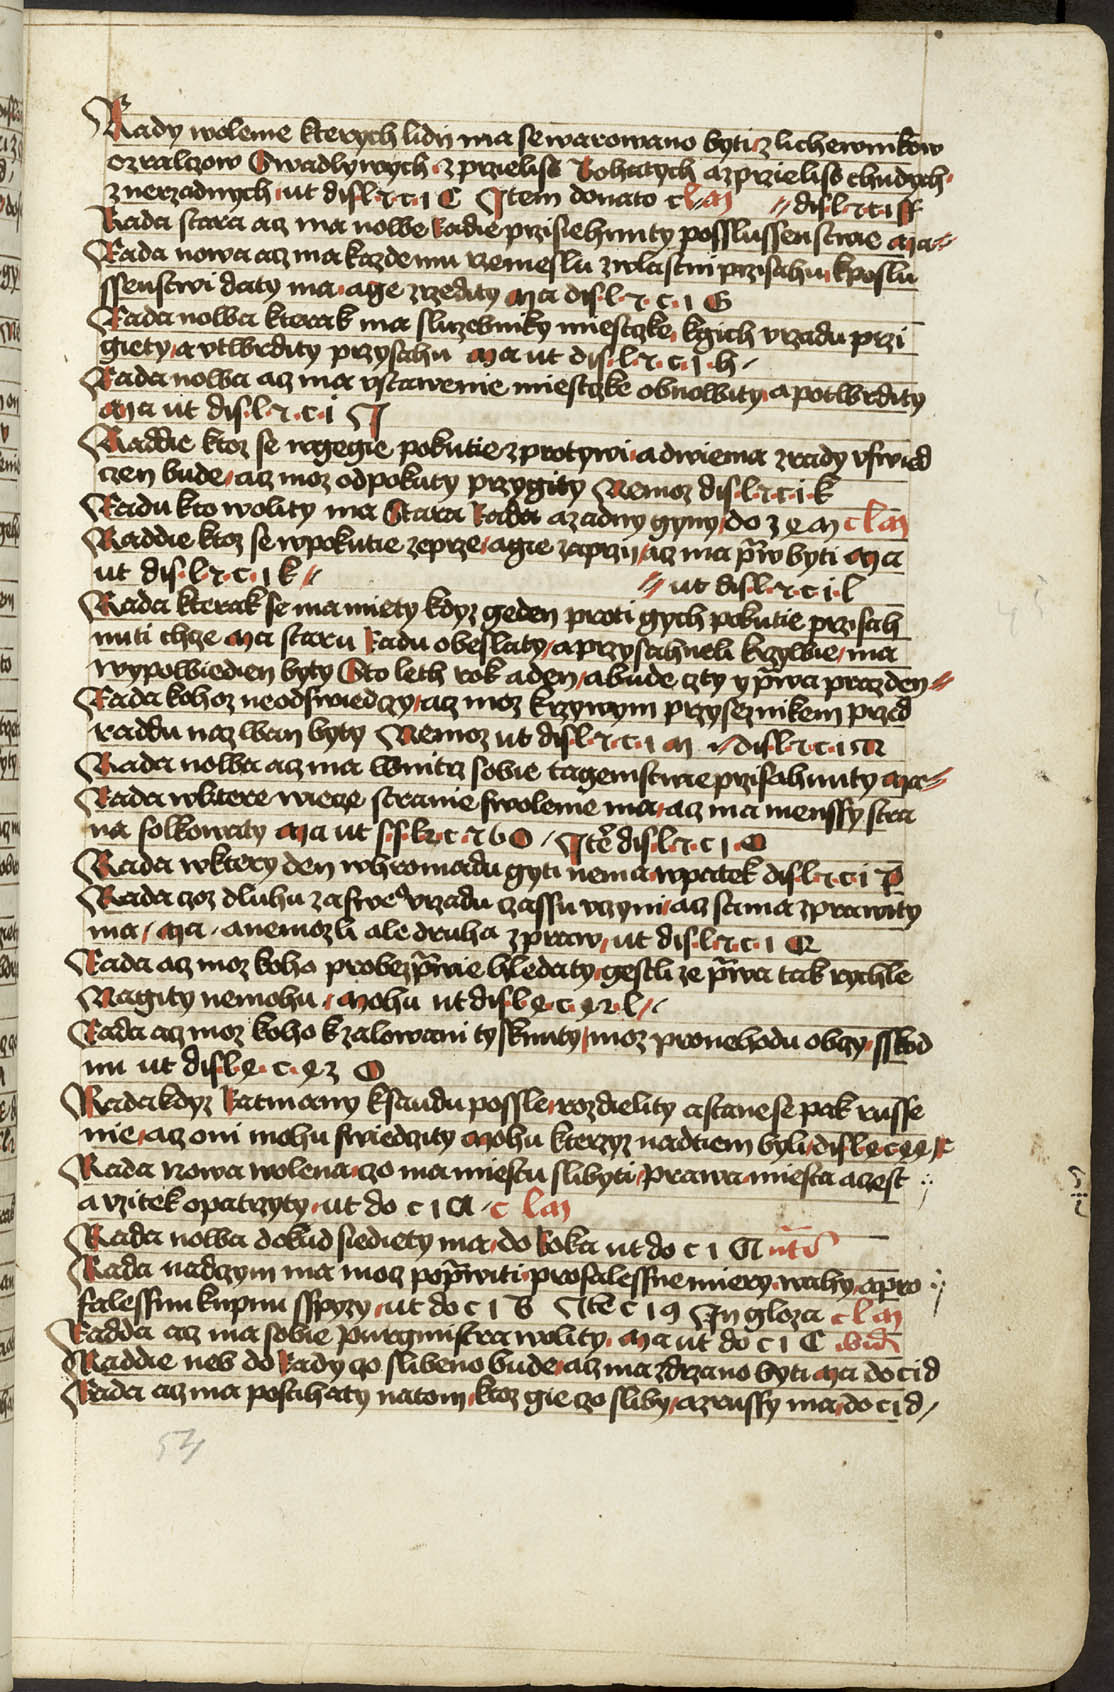 Rady wolenie kterych lidij ma se warowano byti z lichewnikow
ozralczow Swadlywych z przielis Bohatych a z przielis chudych
z nerzadnych ut dis l 2 c 1 C Item donato c lm // dis l 2 c 1 ff
Rada stara acz ma nowe Radie przisiehnuty posslussenstwie Ma //
Rada nowa acz ma kazdemu rzemeslu zwlastni przisahu k poslu
ssenstwi daty ma a ge zrzedity Ma dis l 2 c 1 G
Rada nowa kterak ma sluzebniky miestczke k gich vrzadu przi
giety a vtwrdity przysahu Ma ut dis l 2 c 1 h
Rada nowa acz ma vstawenie miestczke obnowity a potwrdity
Ma ut dis l 2 c i J
Raddie ktoz se w gegie pokutie zprotywi a dwiema z rady vswied
czen bude acz moz odpokuty przygity Nemoz dis l 2 c i k
Radu kto wolity ma Stara Rada a zadny gyny do 3 e m c lm
Raddie ktoz se w pokutie zeprze a gie zaprzij acz ma prw byti Ma
ut dis l 2 c 1 k // // ut dis l 2 c i l
Rada kterak se ma miety kdyz geden proti gych pokutie przisah
nuti chcze Ma staru Radu obeslaty a przysahneli krzywie ma
wypowiedien byty Sto leth rok a den a bude czty y prwa prazden //
Rada kohoz neodswiedczy acz moz krzywym przyseznikem przed
raddu nazwan byty Nemoz ut dis l 2 c 1 m // dis l 2 c i m
Rada nowa acz ma wnitrz sobie tagemstwie przisahnuty Ma //
Rada w ktere wiecze stranie swolenie ma acz ma menssy stra
na folkowaty Ma ut s s l 2 c 2 6 O Ite dis l 2 c 1 O
Rada w ktery den w hromadu gyti nema w patek dis l 2 c i P
Rada czoz dluhu za swe vrzadu czassu vczyni acz sama zprawity
ma Ma a nemozli ale druha zpraw ut dis l 2 c 1 Q
Rada acz moz koho pro bezprwie hledaty gestli ze prwa tak rychle
Nagity nemohu Mohu ut dis l e c e 2 l
Rada acz moz koho k zalowani tysknuty moz pro nehodu obczy sskod
nu ut dis l e c e 3 O
Rada kdyz Ratmany k saudu possle rozdielity a stane se pak russe
nie acz oni mohu swiedczity Mohu kterzyz nad tiem byli dis l e c e e R
Rada nowa wolena czo ma miestu slibyti Prawa miesta a czest
a vzitek opatrzyty ut do c 1 A c lm
Rada nowa dokud siediety ma do Roka ut do c 1 A
Rada nad czym ma mocz poprwiti pro falessne miery wahy a pro
falessnu kupnu sspyzy ut do c 1 B Ite c 1 9 In gloza c lm
Radda acz ma sobie purgmistra wolity Ma ut do c 1 C
Raddie neb do Rady czo slibeno bude acz ma zdrzano byti Ma do c i d
Rada acz ma postihaty na tom ktoz gie czo sliby a zrussy ma do c i d
54